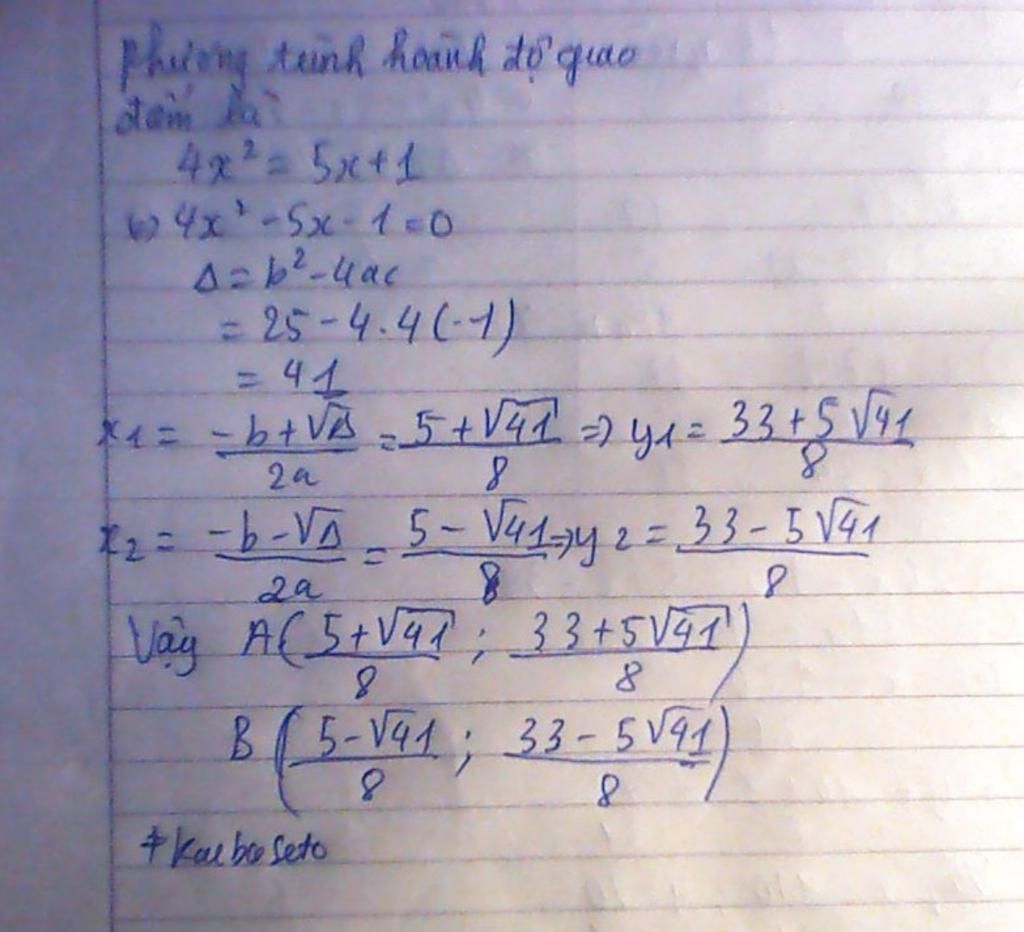 phương trình hoành độ giao
điểm là
4x² = 5x+1
⇔ 4x² - 5x - 1 = 0
Δ = b² - 4ac
= 25 - 4.4(-1)
= 41
x1 = (-b+√Δ)/2a = (5+√41)/8 ⇒ y1 = (33+5√41)/8
x2 = (-b-√Δ)/2a = (5-√41)/8 ⇒ y2 = (33-5√41)/8
Vậy A((5+√41)/8 ; (33+5√41)/8)
B((5-√41)/8 ; (33-5√41)/8)
#Kaibaseto